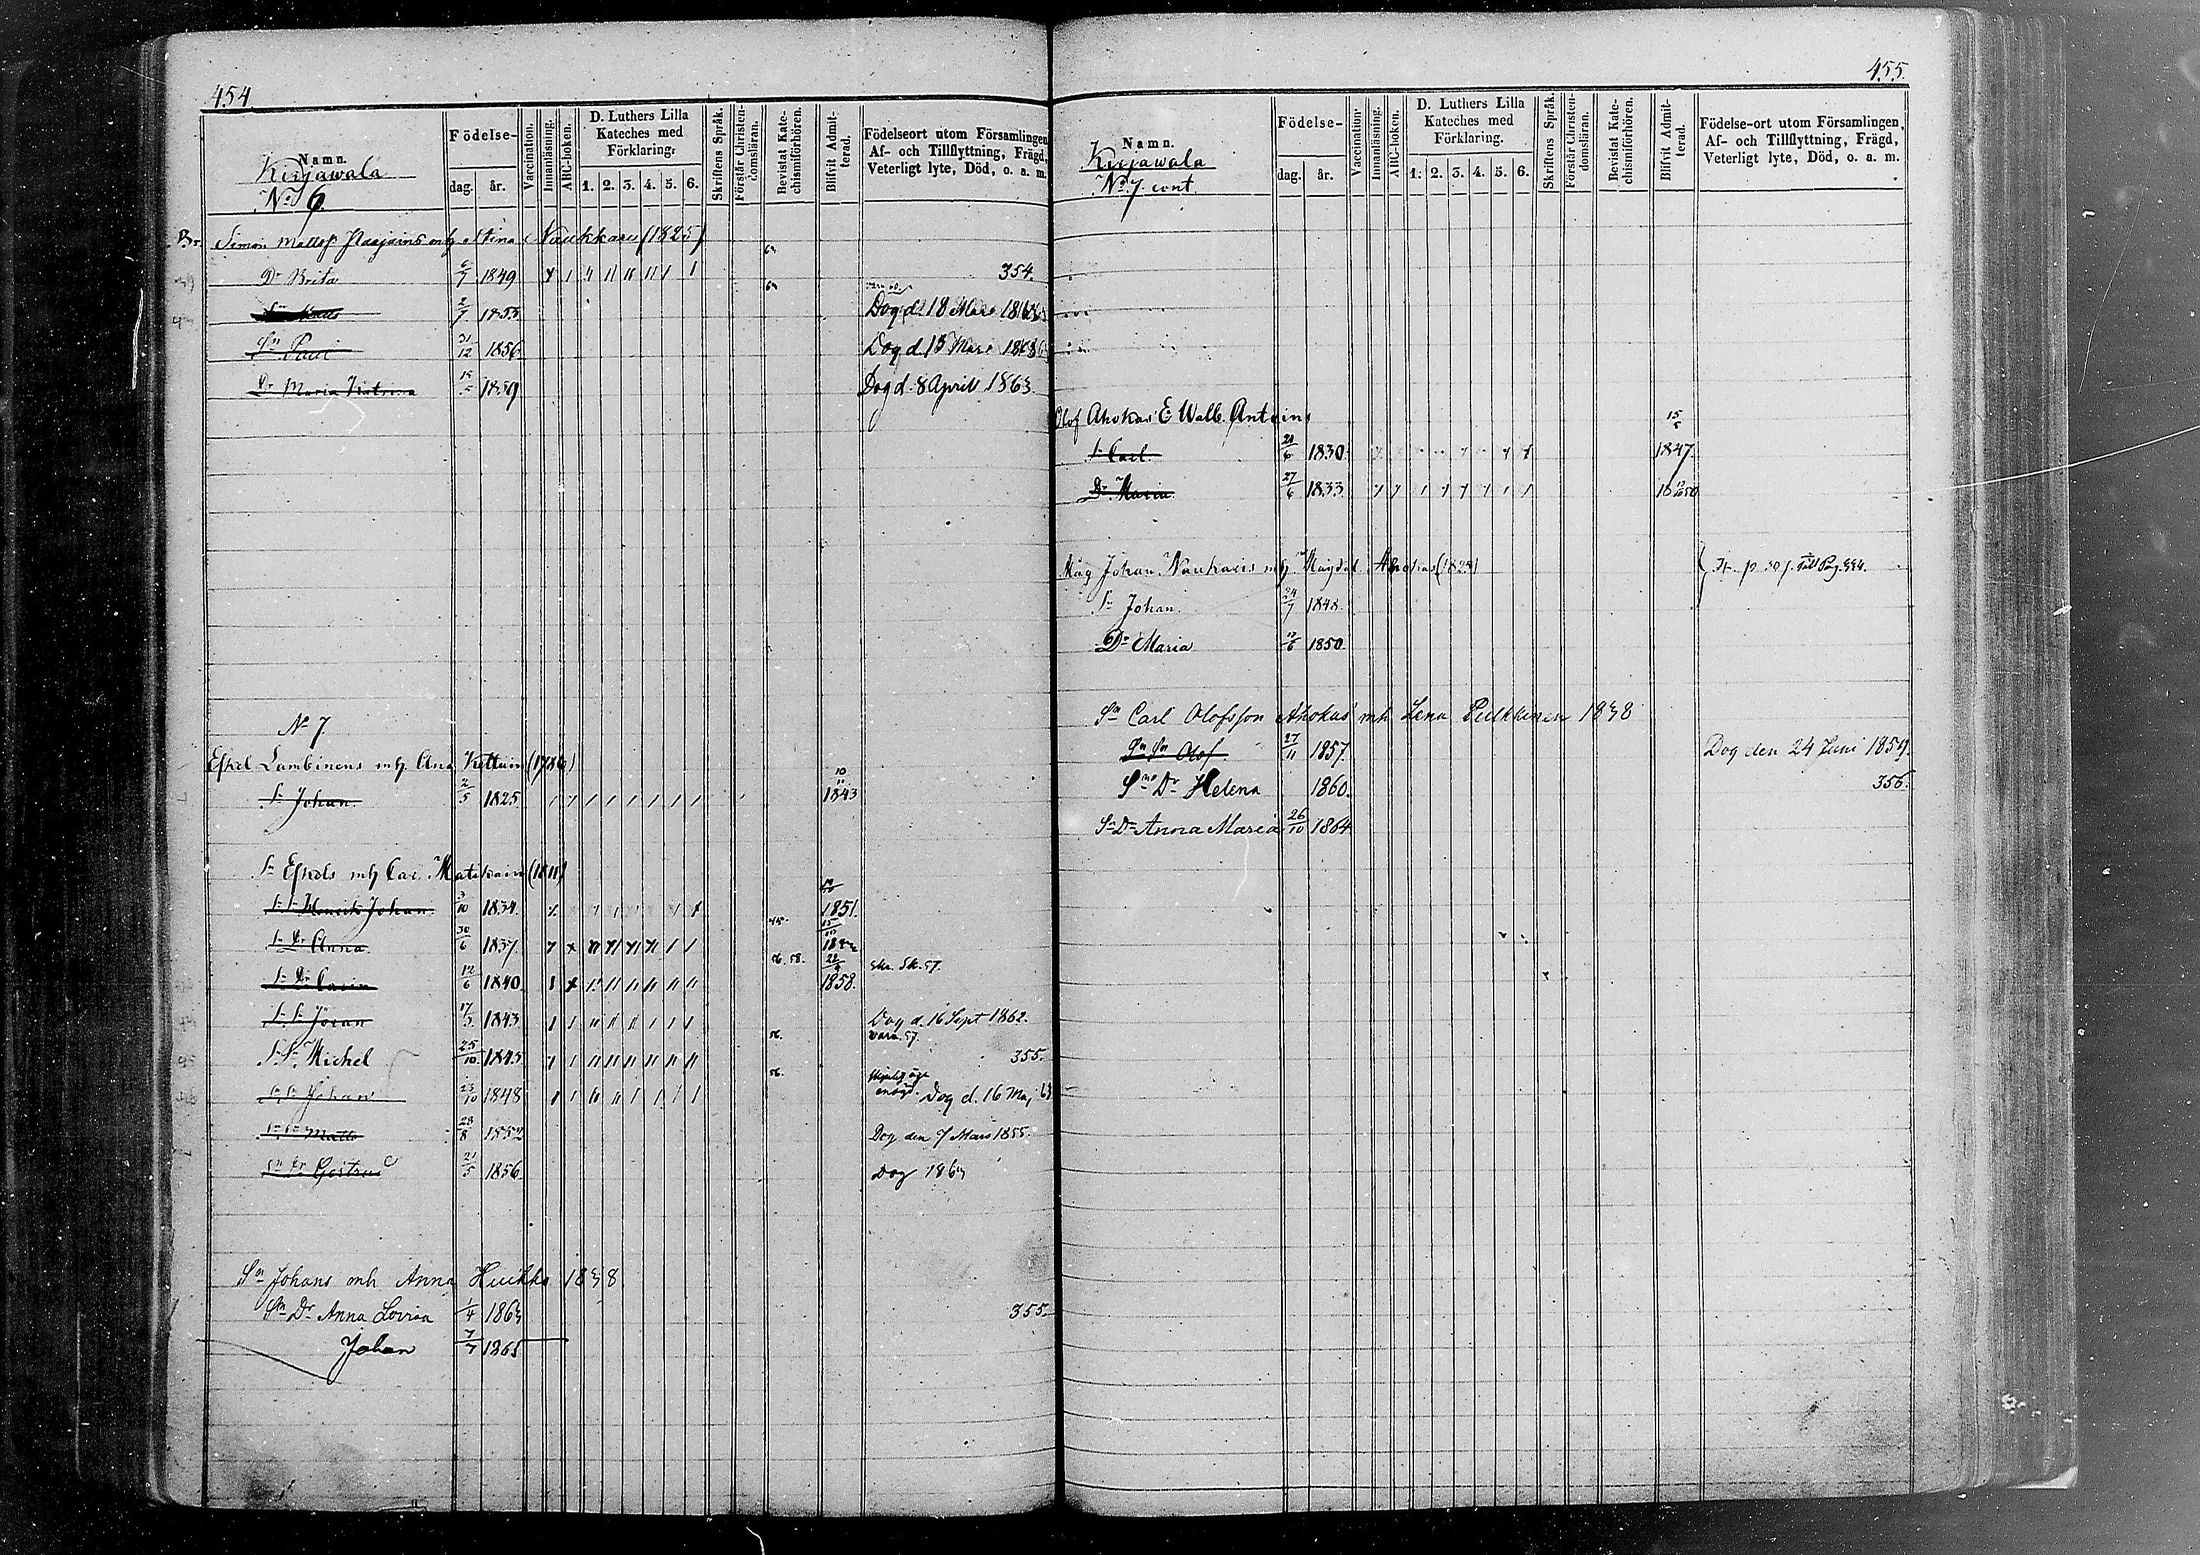 454.
Namn.
Kirjawala
No 6.
Födelse-
dag. år.
Vaccination.
Innanläsning.
ABC-boken.
D. Luthers Lilla
Kateches med
Förklaring.
1. 2. 3. 4. 5. 6.
Skriftens Språk.
Förstår Christen-
domsläran.
Bevistat Kate-
chismiförhören.
Blifvit Admit-
terad.
Födelseort utom Församlingen
Af- och Tillflyttning, Frägd,
Veterligt lyte, Död, o. a. m.
Br. Simon Mattss. mh Stina Naukkari (1825)
Dr Brita 6/7 1849 354.
2/7 1853 Dog d. 18 Mars
Sn Paul 31/12 1856 Dog d. 13 Mars 1863
Dr Maria Katrina 1859 Dog d. 8 April 1863.
No 7.
Eskel Lambinens mh. Ana Kettuin (1786)
Sn Johan 2/5 1825 10/11 1843
Sn Eskels mh Car. Matikain (1811)
Johan 3/10 1834. 1851.
Sn Dr Anna 30/6 1837
Sn Dr Carin 12/6 1840 56. 58. 1858.
Sn Sn Jöran 17/3 1843 Dog d. 16 Sept 1862.
Sn Sn Michel 25/10 1845 56. 355.
Sn Sn Johan 23/10 1848 56. Dog d. 16 Maj
Sn Sn Matts 28/8 1852 Dog den 7 Mars 1855.
Sn Dr Gertrud 21/5 1856 Dog 1863
Sn Johans mh Anna Huikko 1838
Sn Dr Anna Lovisa 1/4 1863 355.
Johan 7/7 1865
455.
Namn.
Kirjawala
No 7 cont.
Födelse-
dag. år.
Vaccination.
Innanläsning.
ABC-boken.
D. Luthers Lilla
Kateches med
Förklaring.
1. 2. 3. 4. 5. 6.
Skriftens Språk.
Förstår Christen-
domsläran.
Bevistat Kate-
chismiförhören.
Blifvit Admit-
terad.
Födelse-ort utom Församlingen,
Af- och Tillflyttning, Frägd,
Veterligt lyte, Död, o. a. m.
Olof Ahokas E. Walb. Antoins
Sn Carl 1830. 1847
Dr Maria 27/6 1833
Måg Johan mh Magdal. Ahokas (1824) Till Pag.
Sn Johan 24/7 1848.
Dr Maria 1850.
Sn Carl Olofsson Ahokas mh Lena Pulkkinen 1838
Sn Sn Olof 27/11 1857. Dog den 24 Juni 1859.
Sns Dr Helena 1860. 356.
Sn Dr Anna Maria 26/10 1864